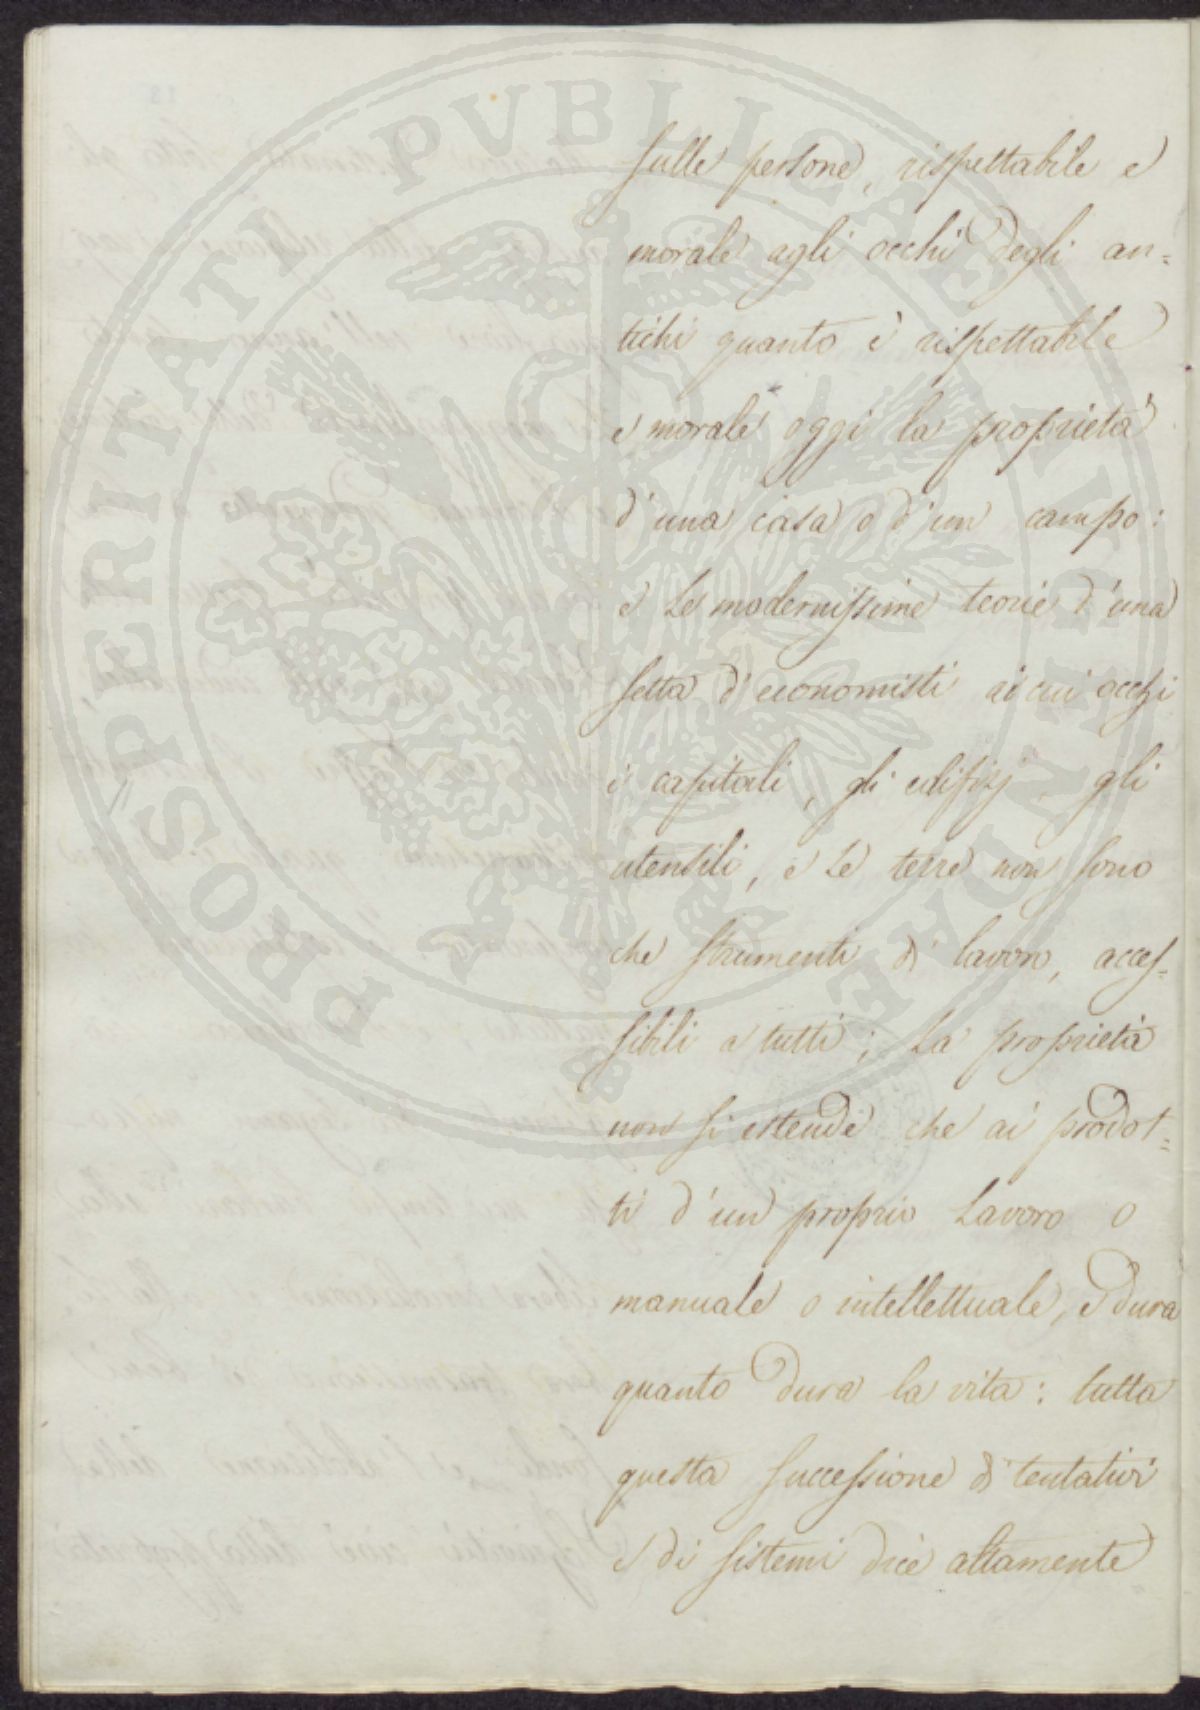 PROSPERITATI PVBLICAE AVGENDAE
sulle persone, rispettabile e
morale agli occhi degli an=
tichi quanto è rispettabile
e morale oggi la proprietà
d'una casa o d'un campo:
e le modernissime teorie d'una
setta d'economisti ai cui occhi
i capitali, gli edifizj, gli
utensili, e le terre non sono
che strumenti di lavoro, acces=
sibili a tutti; la proprietà
non si estende che ai prodot=
ti d'un proprio lavoro o
manuale o intellettuale, e dura
quanto dura la vita: tutta
questa successione di tentativi
e di sistemi dice altamente